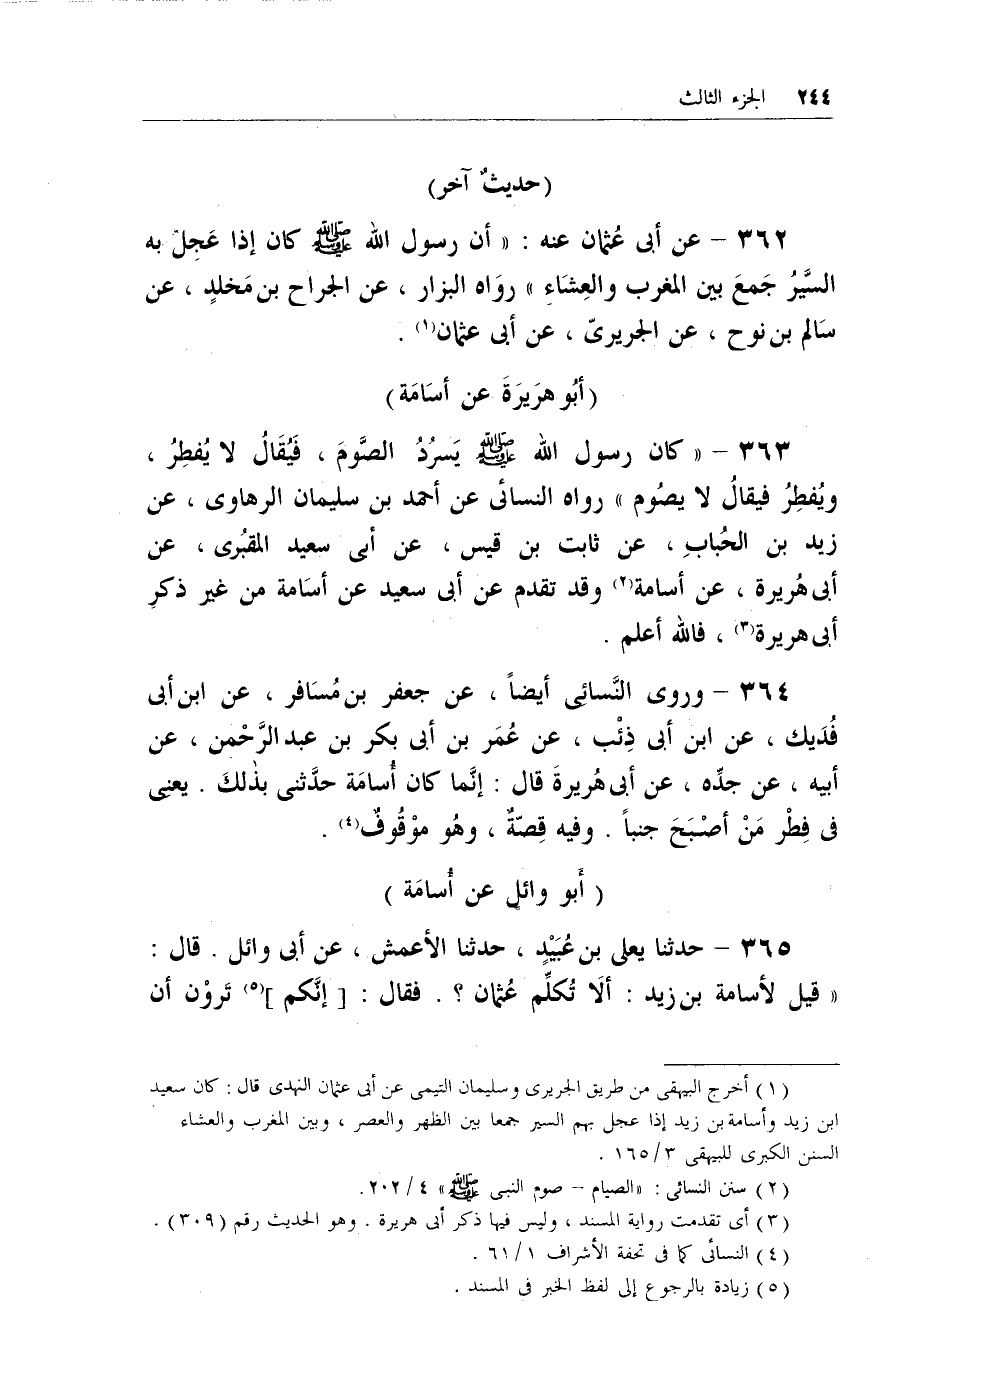 ٢٤٤ الجزء الثالث
(حديثٌ آخر)
٣٦٢ – عن أبى عُثمان عنه : « أن رسول الله ﷺ كان إذا عَجِلَ به
السَّيرُ جَمعَ بين المغرب والعِشَاء » روَاه البزار ، عن الجراح بن مَخلدٍ ، عن
سَالم بن نوح ، عن الجريرىّ ، عن أبى عثمان(١) .
(أبُو هرَيرَةَ عن أسَامَة)
٣٦٣ – « كان رسول الله ﷺ يَسرُدُ الصَّومَ ، فَيُقَالُ لا يُفطِرُ ،
ويُفطِرُ فيقالُ لا يصُوم » رواه النسائى عن أحمد بن سليمان الرهاوى ، عن
زيد بن الحُبابِ ، عن ثابت بن قيس ، عن أبى سعيد المقبُرى ، عن
أبى هُريرة ، عن أسامة(٢) وقد تقدم عن أبى سعيد عن أسَامة من غير ذكرِ
أبى هريرة(٣) ، فالله أعلم .
٣٦٤ – وروى النَّسائِى أيضاً ، عن جعفر بن مُسَافر ، عن ابن أبى
فُدَيك ، عن ابن أبى ذِئْب ، عن عُمَر بن أبى بكر بن عبد الرَّحْمن ، عن
أبيه ، عن جدِّه ، عن أبى هُريرةَ قال : إنَّما كان أُسامَة حدَّثنى بذٰلكَ . يعنِى
فى فِطْر مَنْ أصْبَحَ جنباً . وفيه قِصّةٌ ، وهُو موْقُوفٌ(٤) .
( أَبو وائلٍ عن أُسامَة )
٣٦٥ – حدثنا يعلى بن عُبَيْدٍ ، حدثنا الأعمش ، عن أبى وائل . قال :
« قيل لأسامة بن زيد : ألَا تُكلِّم عُثمان ؟ . فقال : [ إنَّكم ](٥) تَروْن أن
(١) أخرج البيهقى من طريق الجريرى وسليمان التيمى عن أبى عثمان النهدى قال : كان سعيد
ابن زيد وأسامة بن زيد إذا عجل بهم السير جمعا بين الظهر والعصر ، وبين المغرب والعشاء
السنن الكبرى للبيهقى ١٦٥/٣ .
(٢) سنن النسائى : «الصيام – صوم النبى ﷺ» ٢٠٢/٤.
(٣) أى تقدمت رواية المسند ، وليس فيها ذكر أبى هريرة . وهو الحديث رقم (٣٠٩) .
(٤) النسائى كما فى تحفة الأشراف ٦١/١ .
(٥) زيادة بالرجوع إلى لفظ الخبر فى المسند .